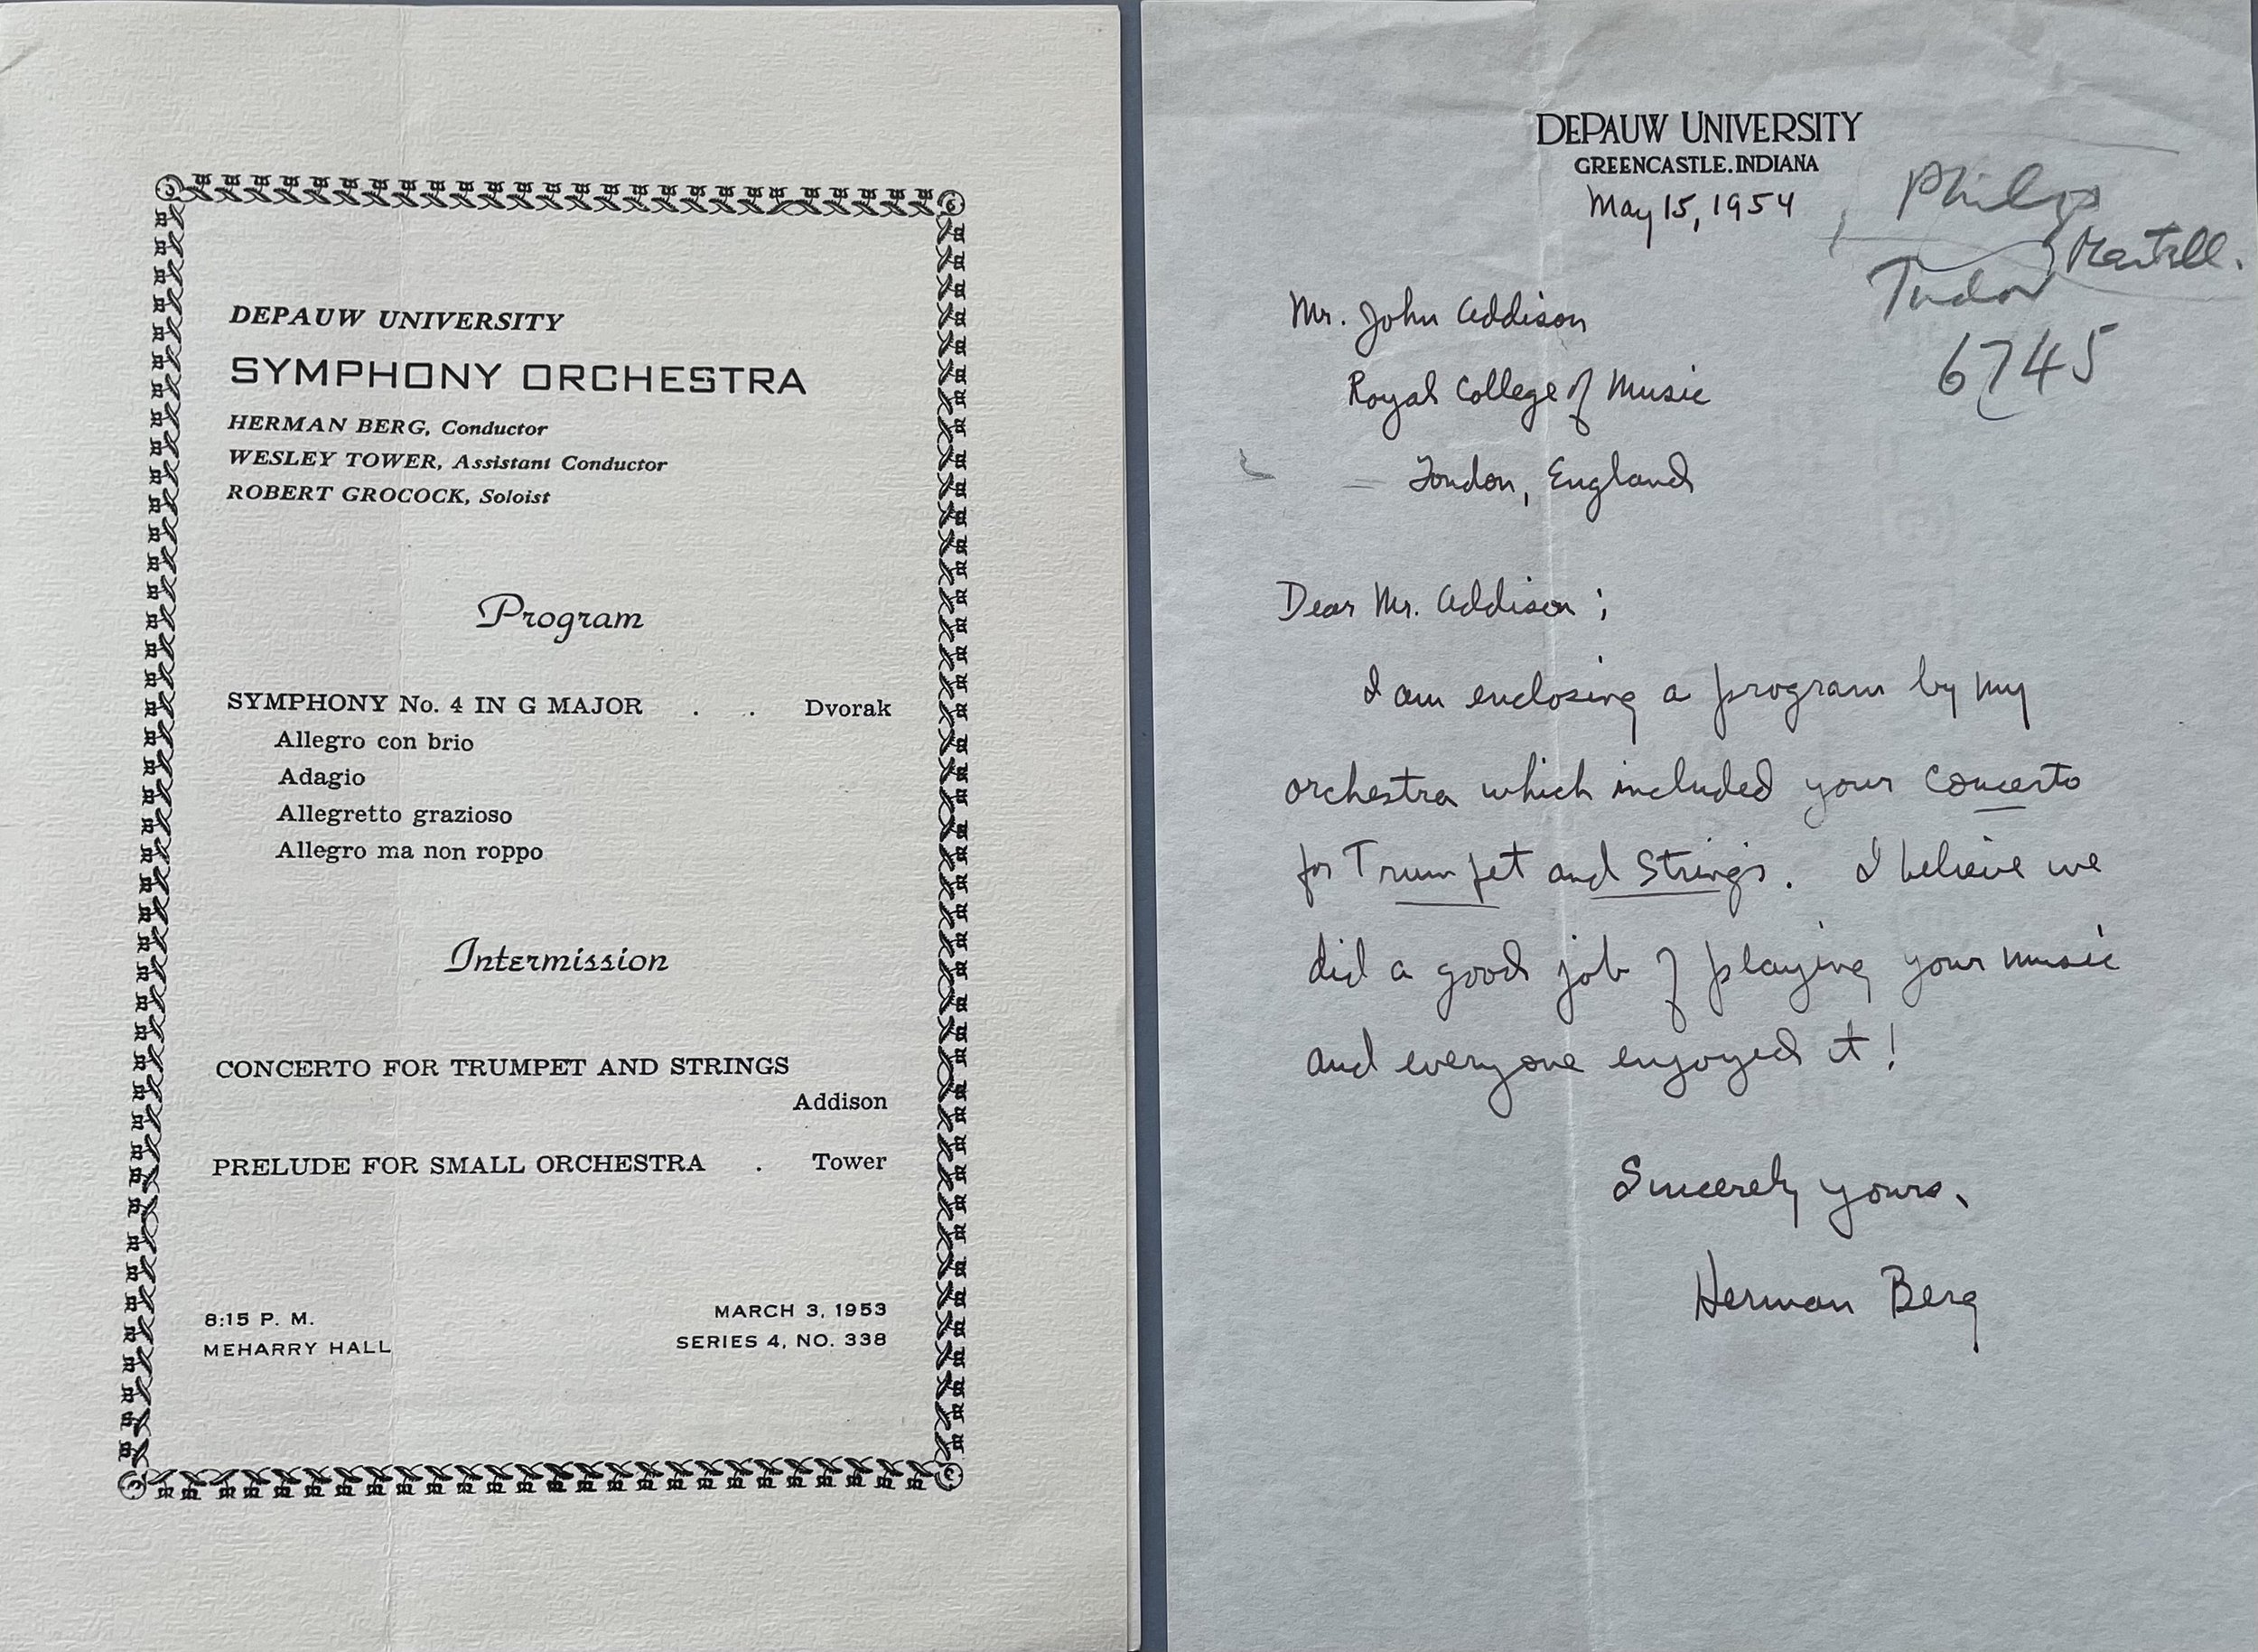 DEPAUW UNIVERSITY
SYMPHONY ORCHESTRA
HERMAN BERG, Conductor
WESLEY TOWER, Assistant Conductor
ROBERT GROCOCK, Soloist
Program
SYMPHONY No. 4 IN G MAJOR . . Dvorak
Allegro con brio
Adagio
Allegretto grazioso
Allegro ma non roppo
Intermission
CONCERTO FOR TRUMPET AND STRINGS
Addison
PRELUDE FOR SMALL ORCHESTRA . Tower
8:15 P. M.
MEHARRY HALL
MARCH 3, 1953
SERIES 4, NO. 338
DEPAUW UNIVERSITY
GREENCASTLE. INDIANA
May 15, 1954
Philip
Martell.
Tudor
6745
Mr. John Addison
Royal College of Music
London, England
Dear Mr. Addison;
I am enclosing a program by my
orchestra which included your Concerto
for Trumpet and Strings. I believe we
did a good job of playing your music
and everyone enjoyed it!
Sincerely yours,
Herman Berg